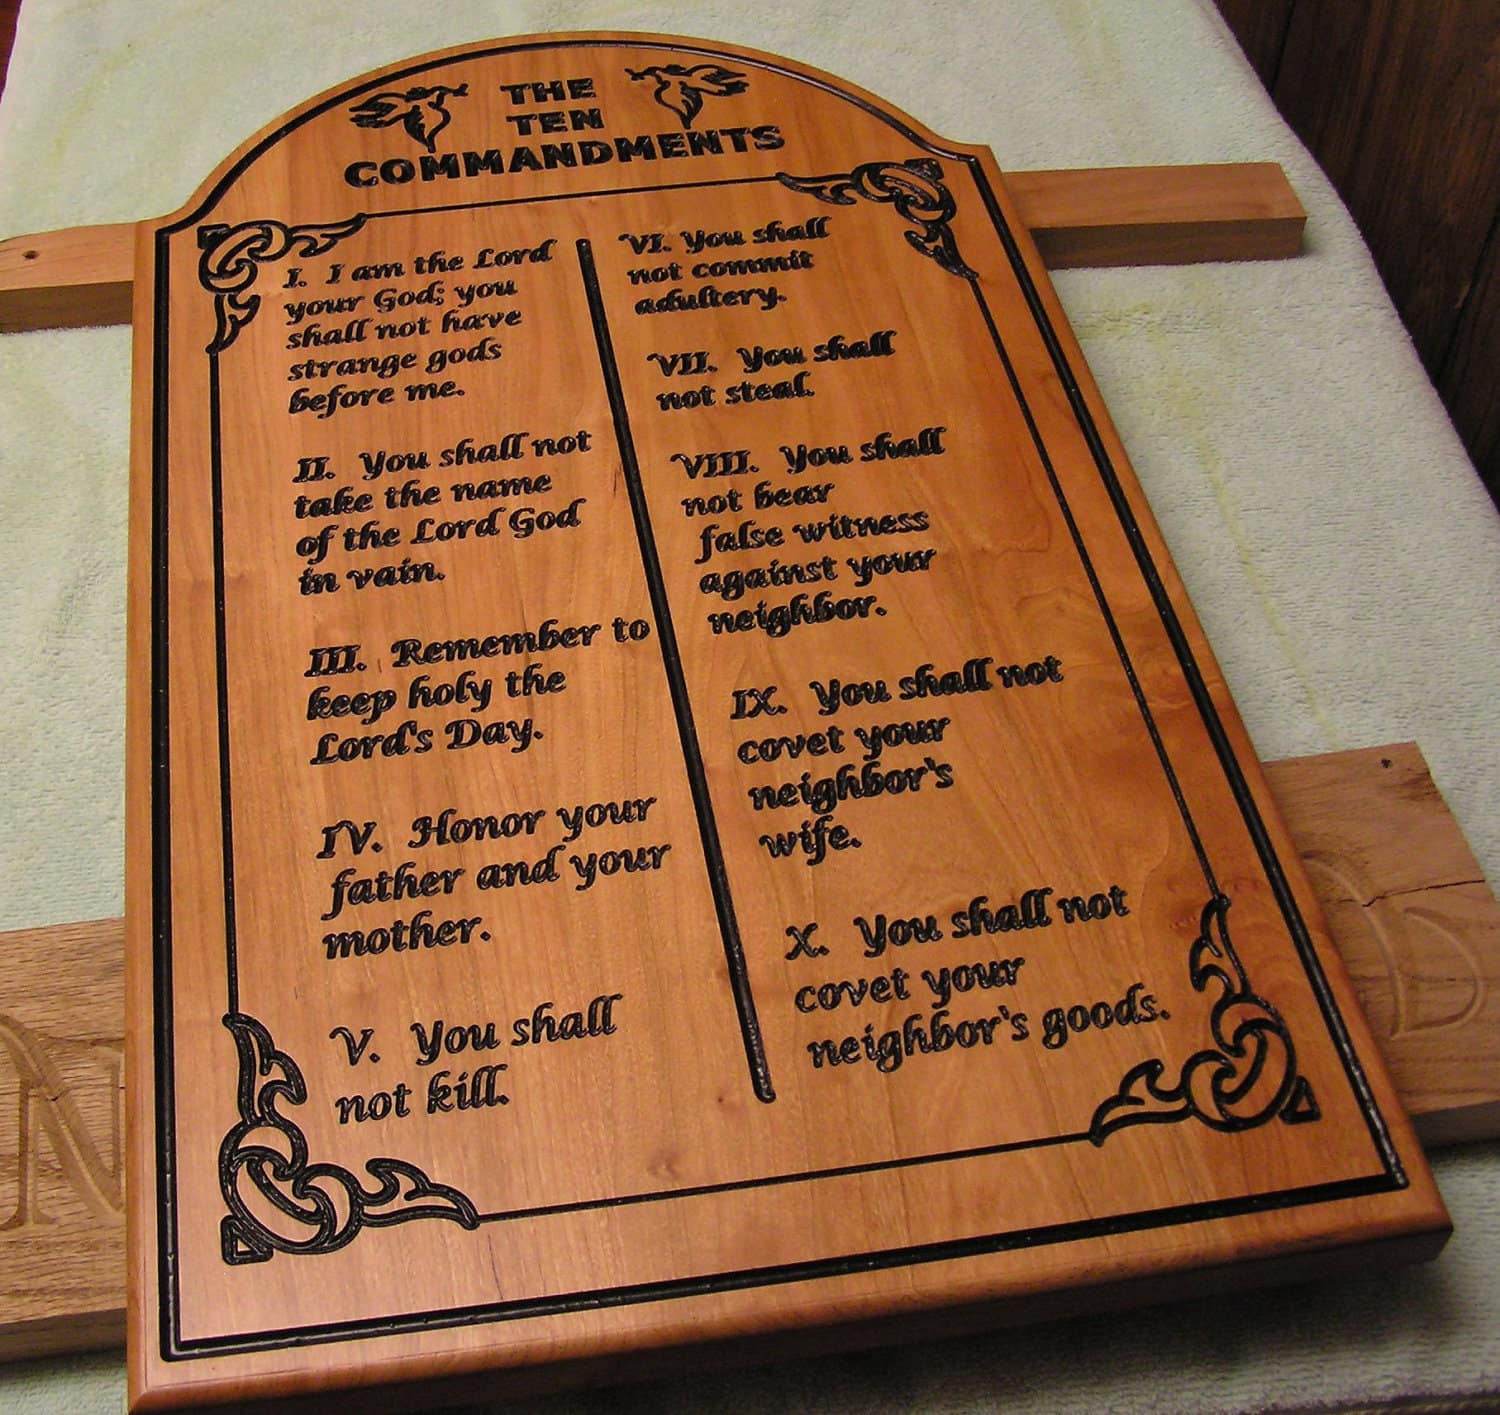 THE
TEN
COMMANDMENTS
I. I am the Lord
your God; you
shall not have
strange gods
before me.
II. You shall not
take the name
of the Lord God
in vain.
III. Remember to
keep holy the
Lord's Day.
IV. Honor your
father and your
mother.
V. You shall
not kill.
VI. You shall
not commit
adultery.
VII. You shall
not steal.
VIII. You shall
not bear
false witness
against your
neighbor.
IX. You shall not
covet your
neighbor's
wife.
X. You shall not
covet your
neighbor's goods.
N
D